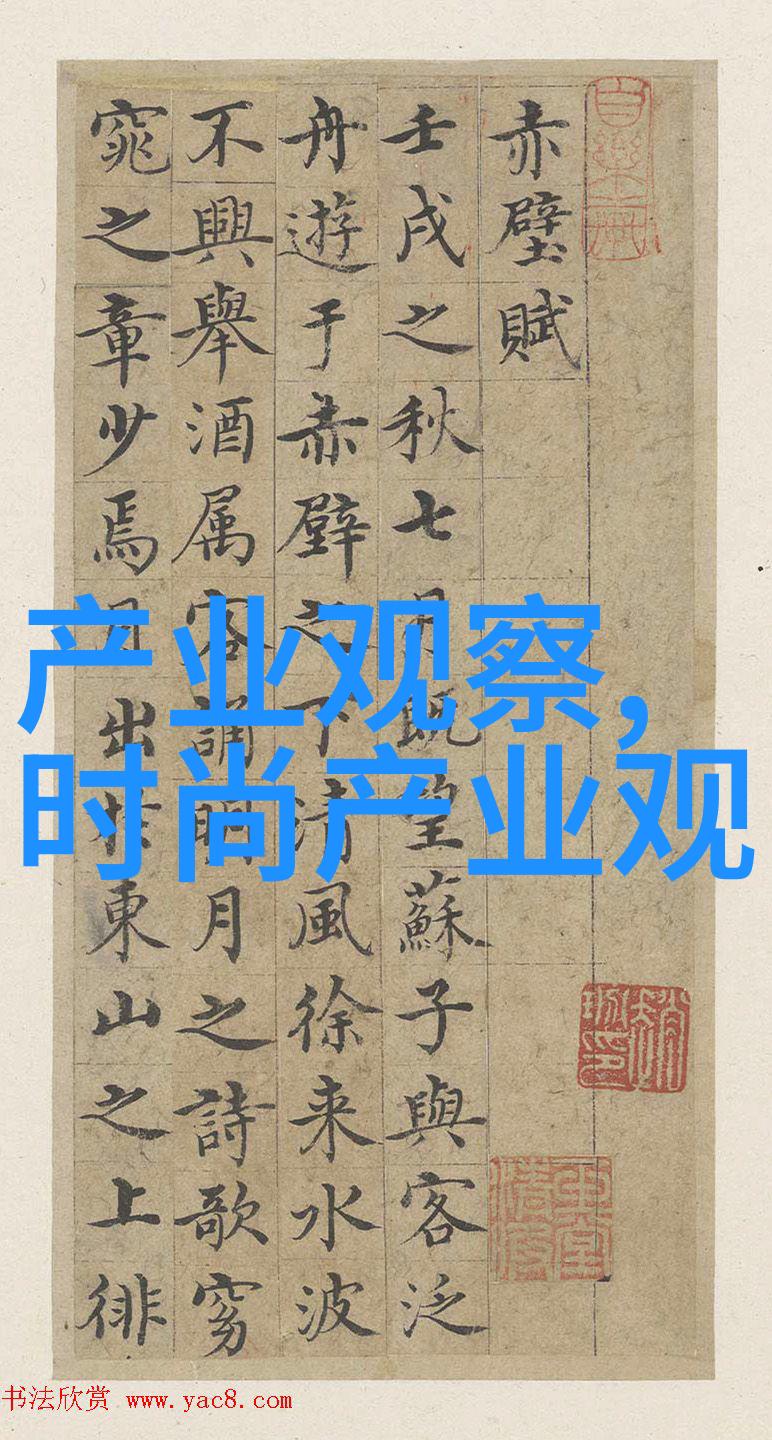 赤壁賦
壬戌之秋七月既望蘇子與客泛
舟遊于赤壁之下清風徐来水波
不興舉酒属客誦明月之詩歌窈
窕之章少焉月出於東山之上徘
产业观察,
时尚产业观
书法欣赏 www.yac8.com